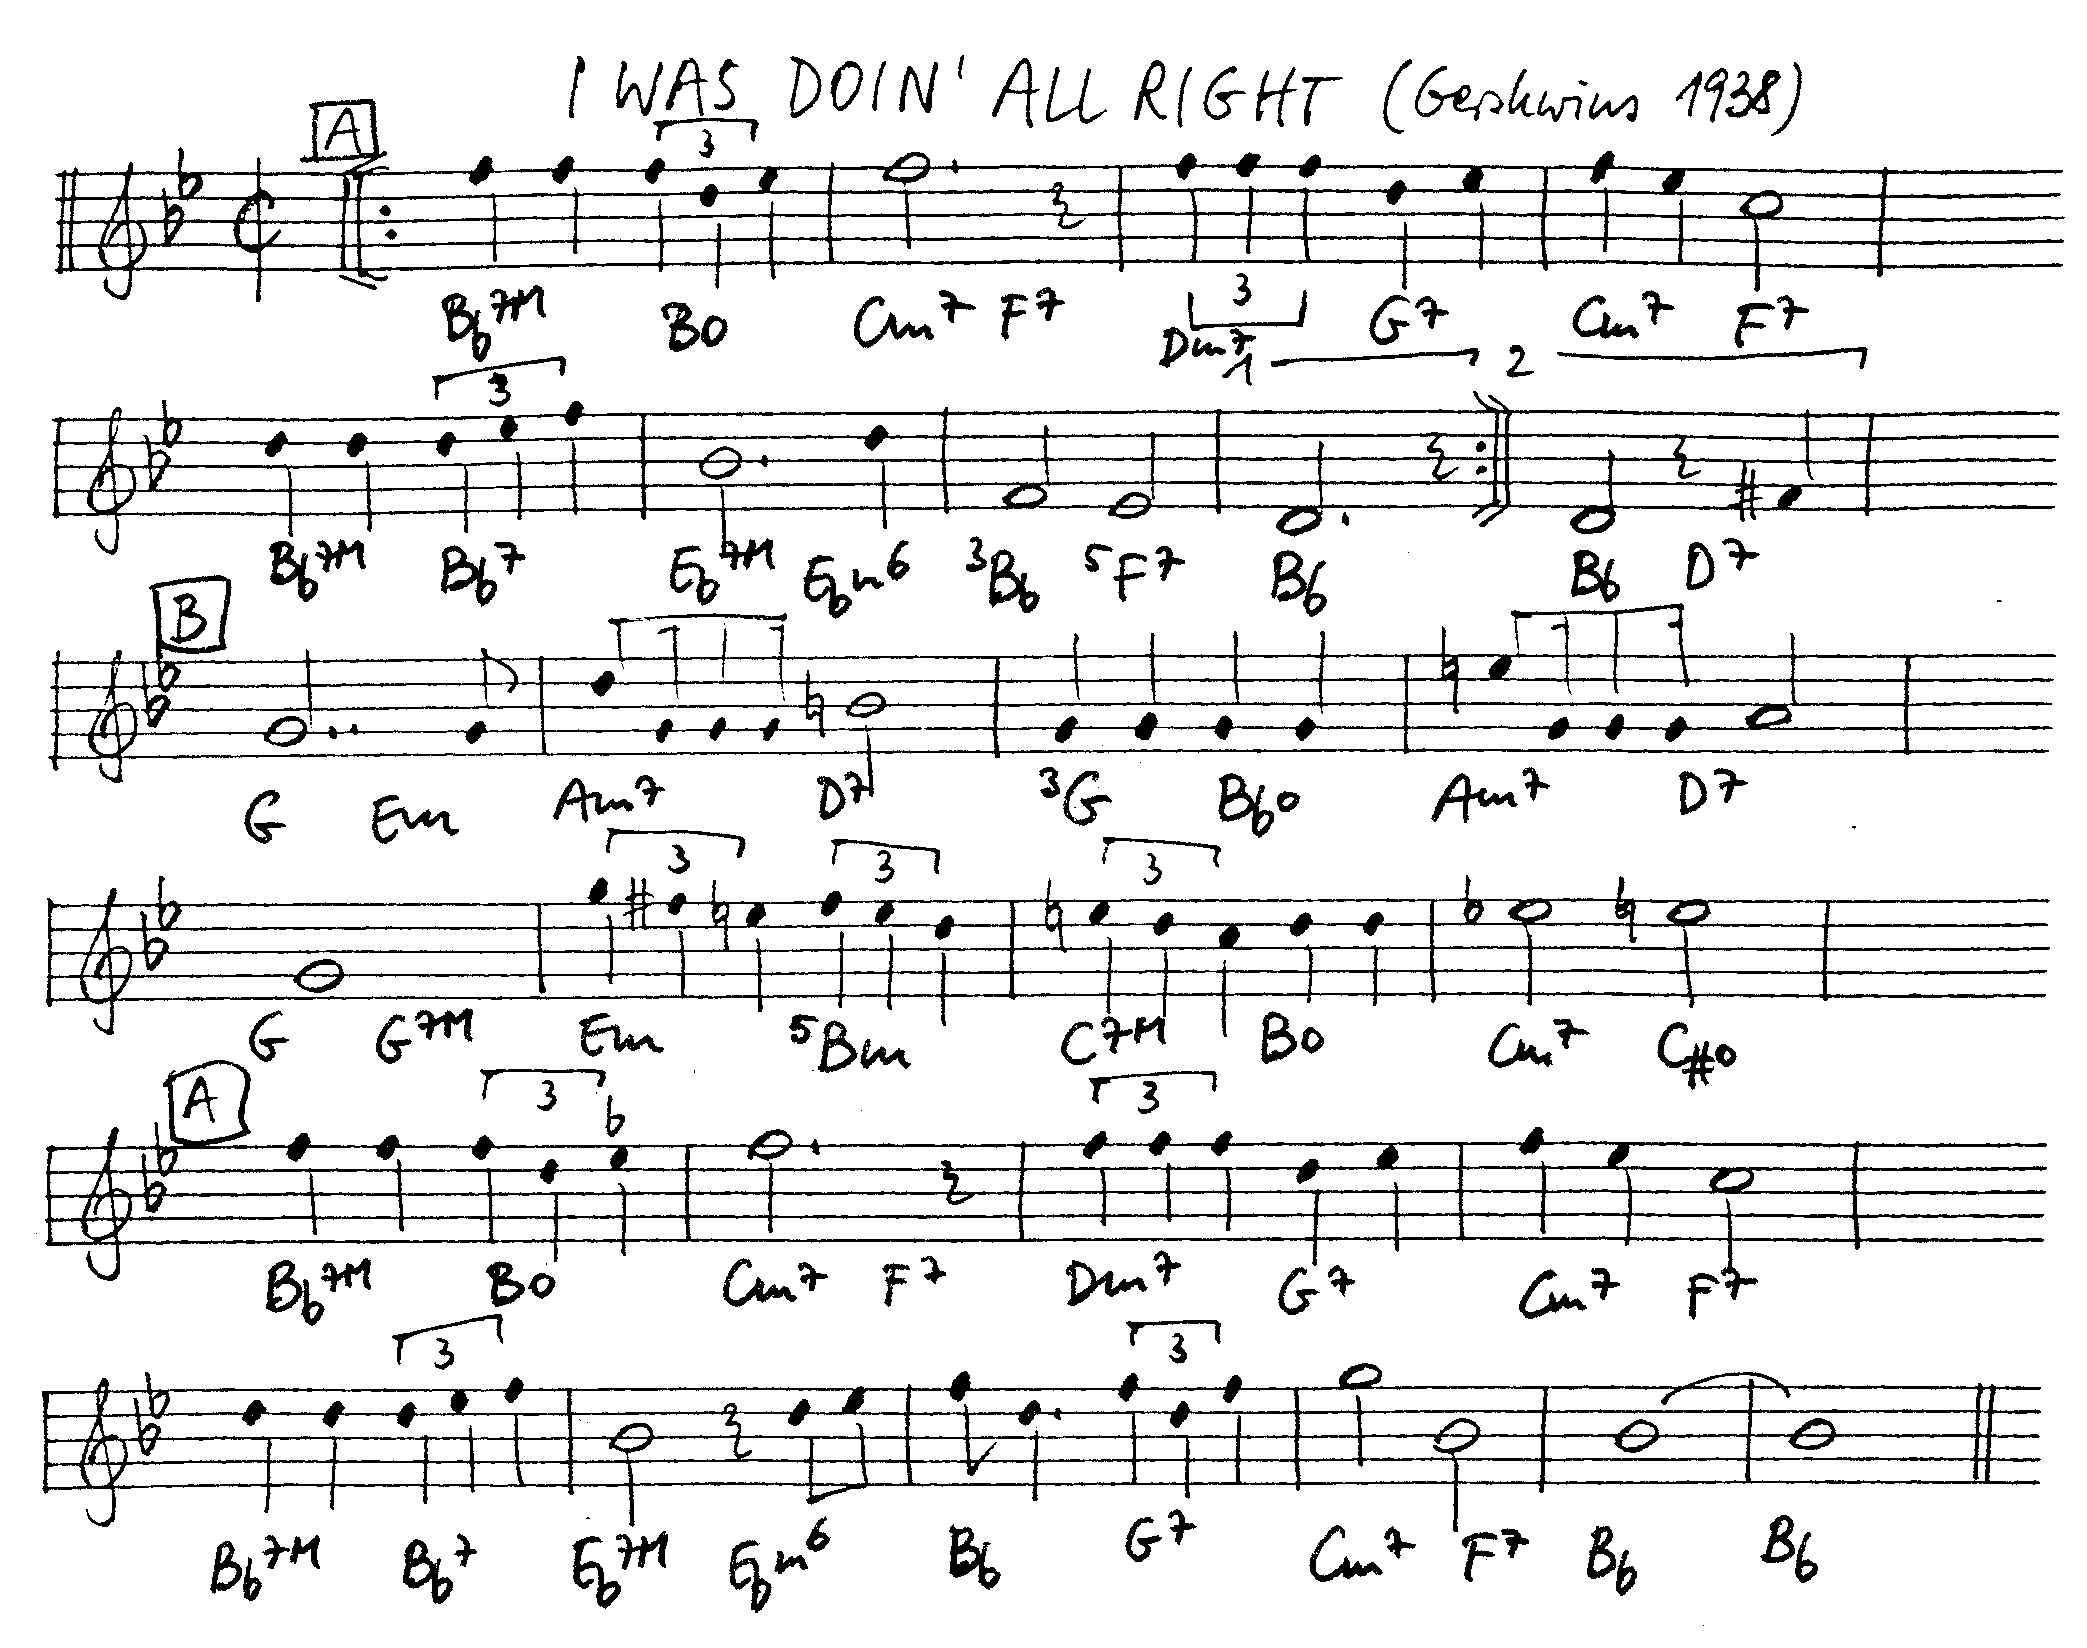 I WAS DOIN' ALL RIGHT (Gershwins 1938)
A
3
3
B♭7M Bo Cm7 F7 Dm7 G7 Cm7 F7
3 1 2
B♭7M B♭7 E♭7M E♭m6 3B♭ 5F7 B♭ B♭ D7
B
G Em Am7 D7 3G B♭o Am7 D7
3 3 3
G G7M Em 5Bm C7M Bo Cm7 C#o
A 3 3
B♭7M Bo Cm7 F7 Dm7 G7 Cm7 F7
3 3
B♭7M B♭7 E♭7M E♭m6 B♭ G7 Cm7 F7 B♭ B♭